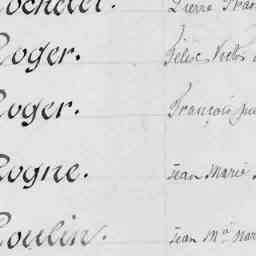 Rochelet. Pierre
Roger. Félix Victor
Roger. François
Rogne. Jean Marie
Roulin. Jean Mie